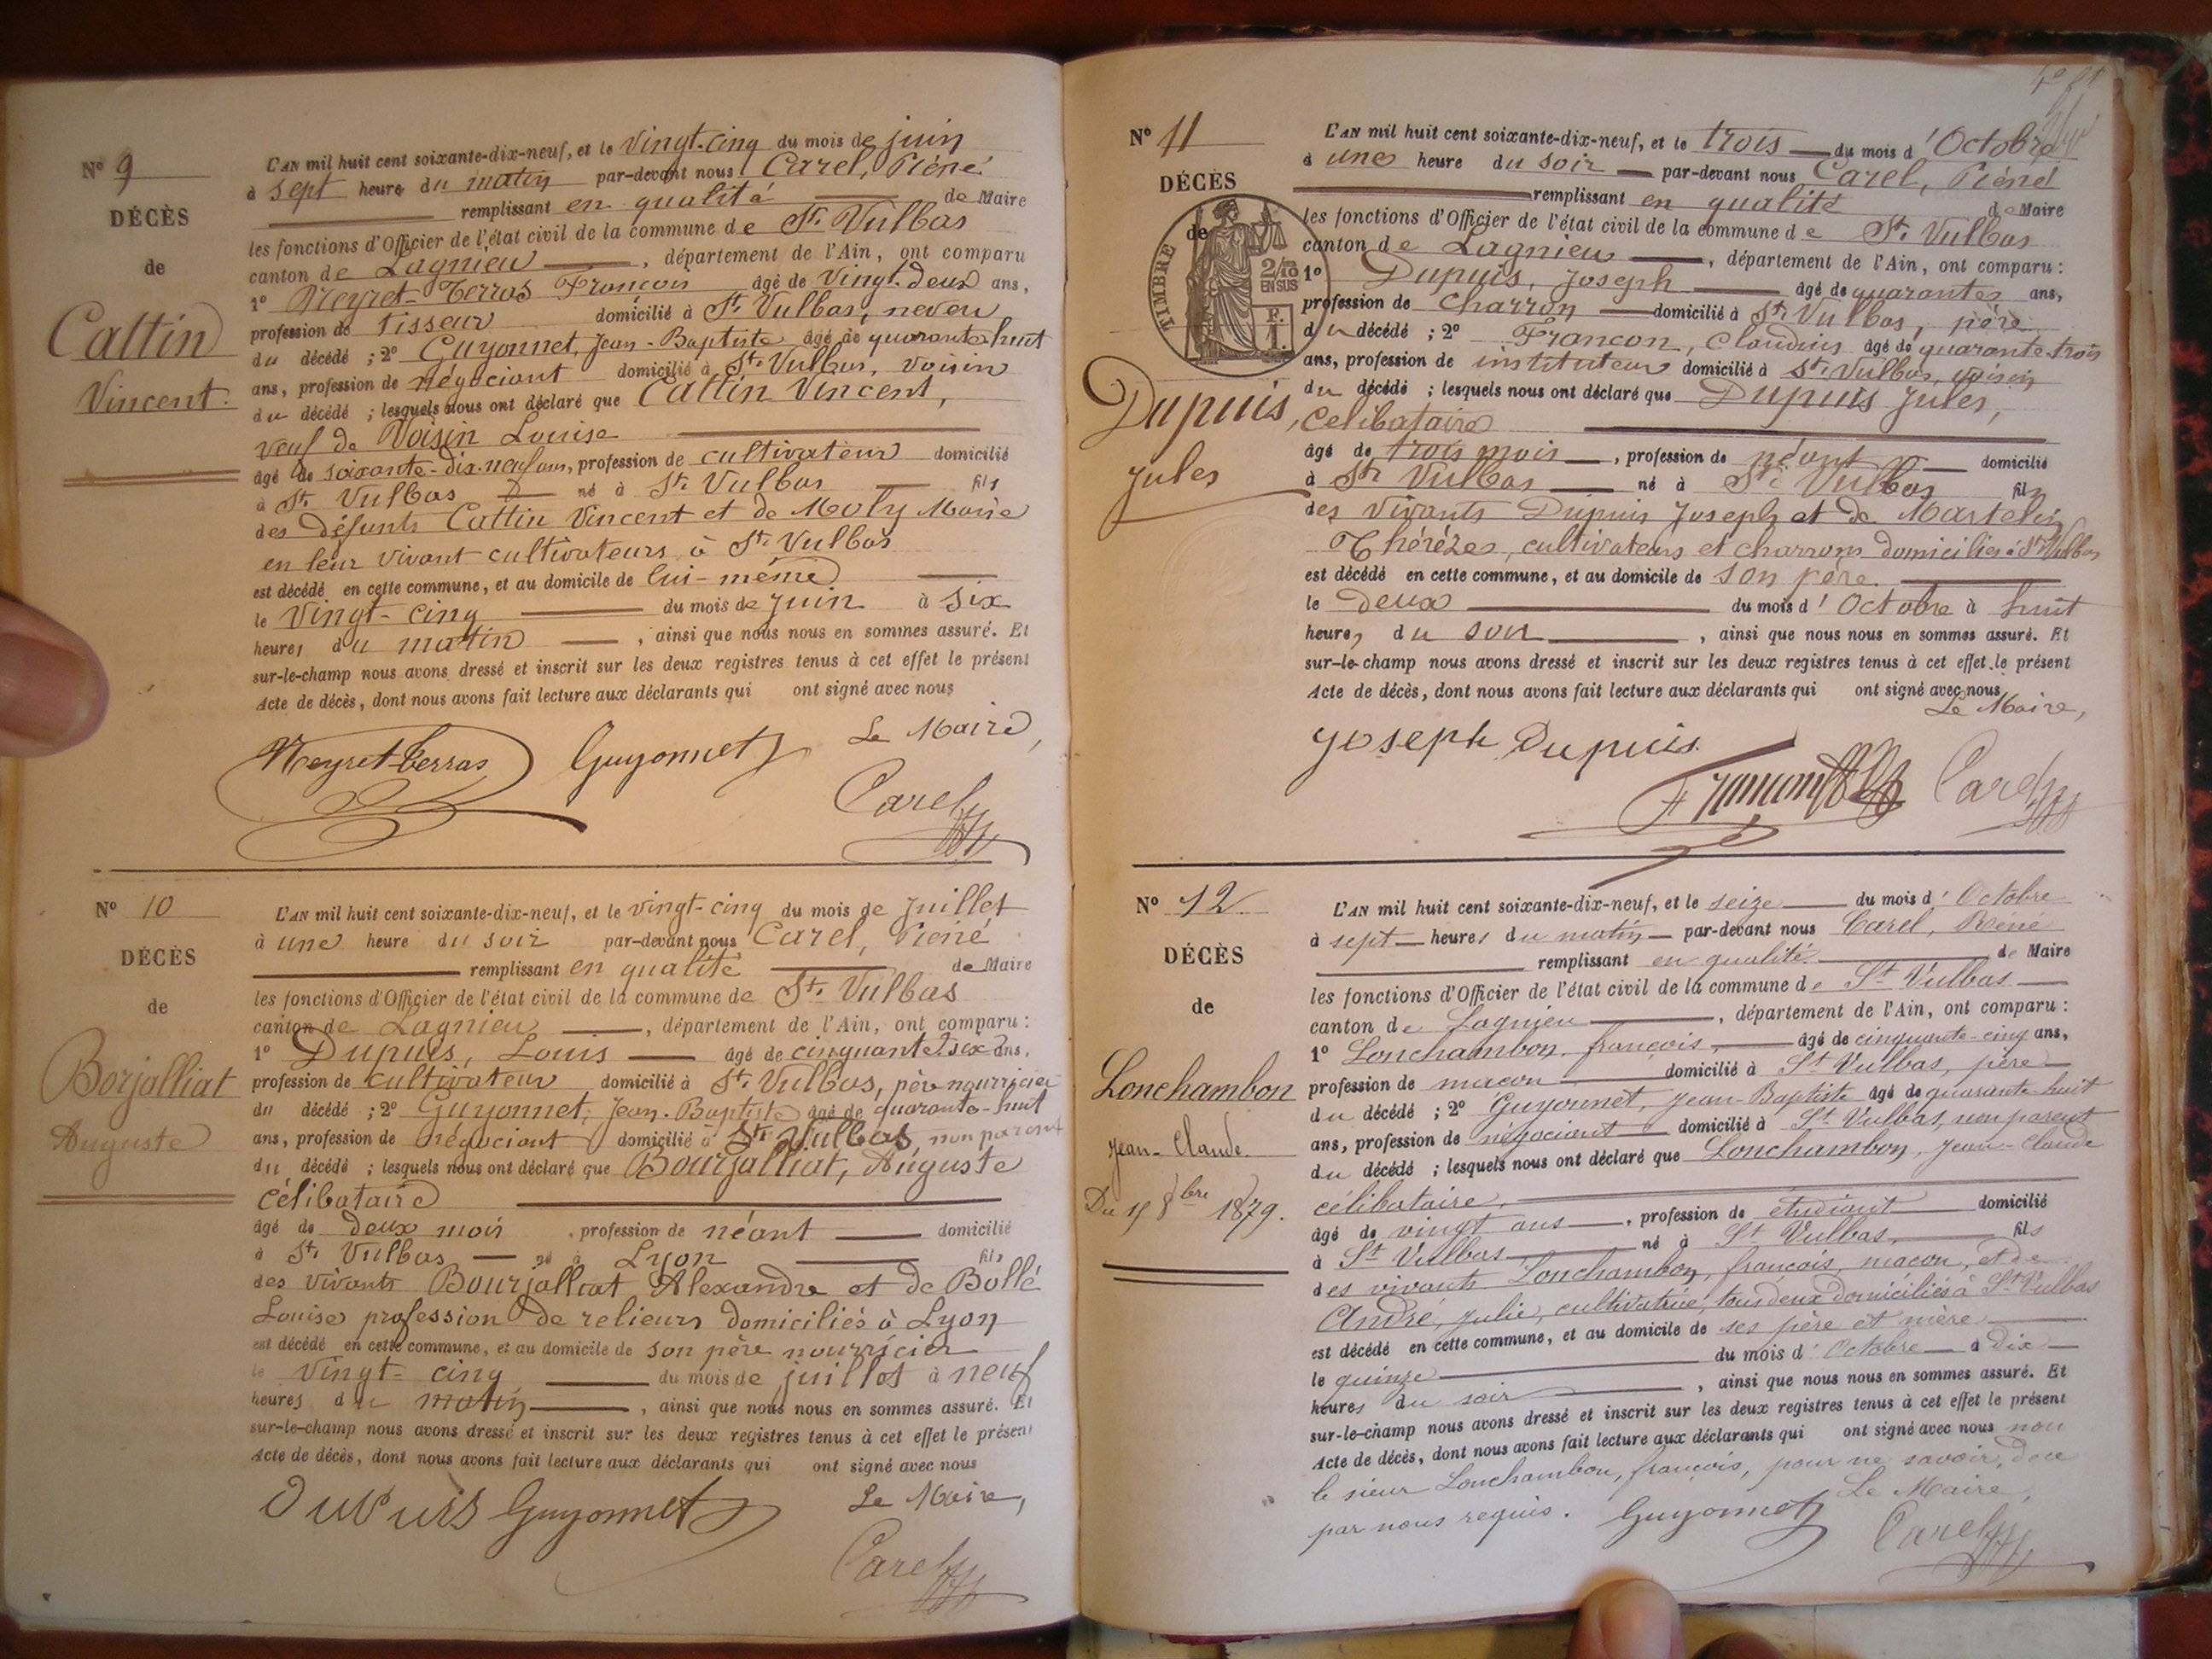 Nº 9
DÉCÈS
de
Cattin
Vincent.
L'AN mil huit cent soixante-dix-neuf, et le vingt-cinq du mois de juin
à sept heures du matin par-devant nous Carel, Réné
remplissant en qualité de Maire
les fonctions d'Officier de l'état civil de la commune de St. Vulbas
canton de Lagnieu, département de l'Ain, ont comparu
1º Neyret-Terras François âgé de vingt-deux ans,
profession de tisseur domicilié à St. Vulbas, neveu
du décédé ; 2º Guyonnet, Jean-Baptiste âgé de quarante-huit
ans, profession de négociant domicilié à St. Vulbas, voisin
du décédé ; lesquels nous ont déclaré que Cattin Vincent,
veuf de Voisin Louise
âgé de soixante-dix-neuf ans, profession de cultivateur domicilié
à St. Vulbas né à St. Vulbas fils
des défunts Cattin Vincent et de Moly Marie
en leur vivant cultivateurs à St. Vulbas
est décédé en cette commune, et au domicile de lui-même
le vingt-cinq du mois de juin à six
heures du matin, ainsi que nous nous en sommes assuré. Et
sur-le-champ nous avons dressé et inscrit sur les deux registres tenus à cet effet le présent
Acte de décès, dont nous avons fait lecture aux déclarants qui ont signé avec nous
Le Maire,
Neyret-terras Guyonnet
Carel
Nº 10
DÉCÈS
de
Borjalliat
Auguste
L'AN mil huit cent soixante-dix-neuf, et le vingt-cinq du mois de Juillet
à une heure du soir par-devant nous Carel, Réné
remplissant en qualité de Maire
les fonctions d'Officier de l'état civil de la commune de St. Vulbas
canton de Lagnieu, département de l'Ain, ont comparu :
1º Dupuis, Louis âgé de cinquante-six ans,
profession de cultivateur domicilié à St. Vulbas, père nourricier
du décédé ; 2º Guyonnet, Jean-Baptiste âgé de quarante-huit
ans, profession de négociant domicilié à St. Vulbas, non parent
du décédé ; lesquels nous ont déclaré que Bourjalliat, Auguste
célibataire
âgé de deux mois, profession de néant domicilié
à St. Vulbas né à Lyon fils
des vivants Bourjalliat Alexandre et de Bollé
Louise profession de relieurs domiciliés à Lyon
est décédé en cette commune, et au domicile de son père nourricier
le vingt-cinq du mois de juillet à neuf
heures du matin, ainsi que nous nous en sommes assuré. Et
sur-le-champ nous avons dressé et inscrit sur les deux registres tenus à cet effet le présent
Acte de décès, dont nous avons fait lecture aux déclarants qui ont signé avec nous
Le Maire,
Dupuis Guyonnet
Carel
Nº 11
DÉCÈS
de
TIMBRE
2/10
EN SUS
F.
1.
Dupuis,
Jules
L'AN mil huit cent soixante-dix-neuf, et le trois du mois d'Octobre
à une heure du soir par-devant nous Carel, Réné
remplissant en qualité de Maire
les fonctions d'Officier de l'état civil de la commune de St. Vulbas
canton de Lagnieu, département de l'Ain, ont comparu :
1º Dupuis, Joseph âgé de quarante ans,
profession de charron domicilié à St. Vulbas, père
du décédé ; 2º Francon, Claudius âgé de quarante-trois
ans, profession de instituteur domicilié à St. Vulbas, voisin
du décédé ; lesquels nous ont déclaré que Dupuis Jules,
célibataire
âgé de trois mois, profession de néant domicilié
à St. Vulbas né à St. Vulbas fils
des vivants Dupuis Joseph et de Martelin
Thérèze, cultivateurs et charrons domiciliés à St. Vulbas
est décédé en cette commune, et au domicile de son père.
le deux du mois d'Octobre à huit
heures du soir, ainsi que nous nous en sommes assuré. Et
sur-le-champ nous avons dressé et inscrit sur les deux registres tenus à cet effet le présent
Acte de décès, dont nous avons fait lecture aux déclarants qui ont signé avec nous
Le Maire,
Joseph Dupuis.
Francon Carel
Nº 12
DÉCÈS
de
Lonchambon
Jean-Claude.
Du 15 8bre 1879.
L'AN mil huit cent soixante-dix-neuf, et le seize du mois d'Octobre
à sept heures du matin par-devant nous Carel, Réné
remplissant en qualité de Maire
les fonctions d'Officier de l'état civil de la commune de St Vulbas
canton de Lagnieu, département de l'Ain, ont comparu :
1º Lonchambon, françois, âgé de cinquante-cinq ans,
profession de maçon domicilié à St Vulbas, père
du décédé ; 2º Guyonnet, Jean-Baptiste âgé de quarante-huit
ans, profession de négociant domicilié à St Vulbas, non parent
du décédé ; lesquels nous ont déclaré que Lonchambon, Jean-Claude
célibataire,
âgé de vingt ans, profession de étudiant domicilié
à St Vulbas né à St Vulbas, fils
des vivants Lonchambon, françois, maçon, et de
André, Julie, cultivatrice, tous deux domiciliés à St Vulbas
est décédé en cette commune, et au domicile de ses père et mère
le quinze du mois d'Octobre à dix
heures du soir, ainsi que nous nous en sommes assuré. Et
sur-le-champ nous avons dressé et inscrit sur les deux registres tenus à cet effet le présent
Acte de décès, dont nous avons fait lecture aux déclarants qui ont signé avec nous non
le sieur Lonchambon, françois, pour ne savoir, de ce
par nous requis. Guyonnet Le Maire,
Carel